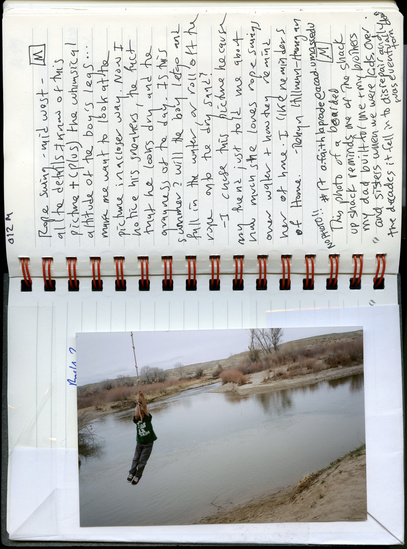 012 M
Rope Swing - mid west M
all the details I know of this
picture + (plus) the whimsical
altitude of the boy's legs...
make me want to look at the
picture in a closer way. Now I
notice his sneakers the fact
that he looks dry and the
grayness of the day. Is this
summer? Will the boy let go and
fall in the water or roll off the
rope onto the dry
- I chose this picture because
my friend just told me about
how much she loves rope swings
over water + how they remind
her of home. I like reminders
of home. - Robyn Hillman-Harrigan
NO PHOTO!! #17
This photo of a boarded M
up shack reminds me of the shack
my dad built for me + my brothers
and sisters when we were kids. Over
the decades it fell into disrepair and
was eventually